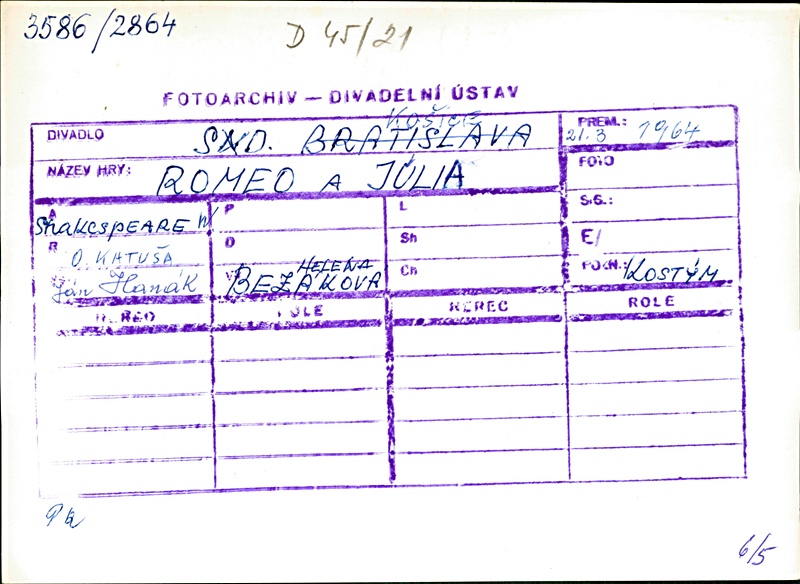 3586/2864
D 45/21
FOTOARCHIV — DIVADELNÍ ÚSTAV
DIVADLO
Košice
SND. BRATISLAVA
PREM.:
21.3 1964
NÁZEV HRY:
ROMEO A JÚLIA
FOTO
A
Shakespeare W
P
L
S.G.:
R
O. KATUŠA
D
Sh
E/
S
Ján Hanák
V
HELENA
BEZÁKOVA
Ch
POZN.:
KOSTÝM
HEREC
ROLE
HEREC
ROLE
6/5